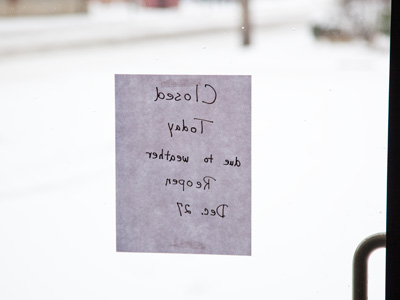 Closed
Today
due to weather
Reopen
Dec. 27